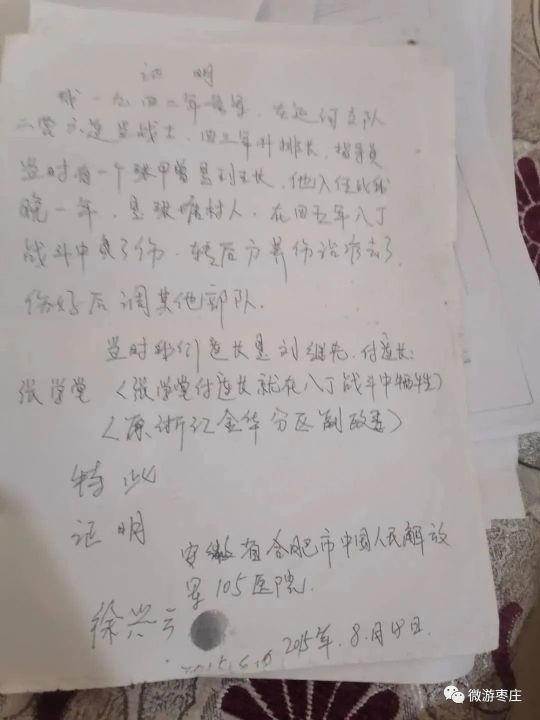 证 明
我一九四二年 在运河支队
二营六连当战士，四三年升排长，指导员
当时有一个张甲曾是副班长，他入伍比我
晚一年，是张塘村人，在四五年八丁
战斗中负了伤，转后方养伤治疗去了
伤好后调其他部队．
当时我们连长是刘继先．付连长：
张学堂（张学堂付连长就在八丁战斗中牺牲）
（原浙江金华分区副政委）
特此
证明
安徽省合肥市中国人民解放
军105医院．
徐兴
2015年．8．月
微游枣庄